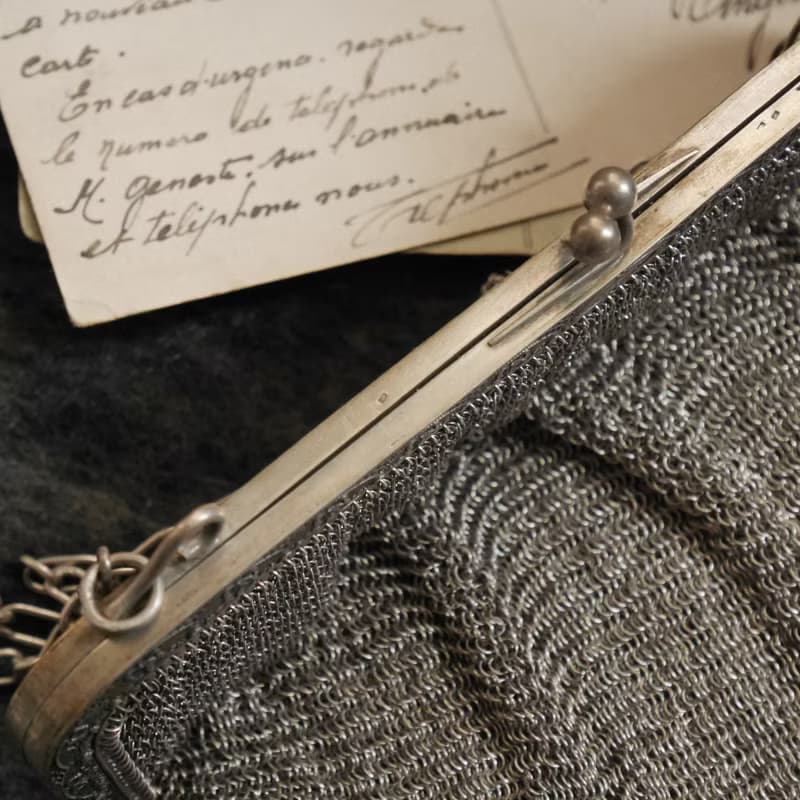 a nouveau
carte.
En cas d'urgence. regarde
le numero de telephone
M. Geneste. sur l'annuaire
et teléphonez nous.